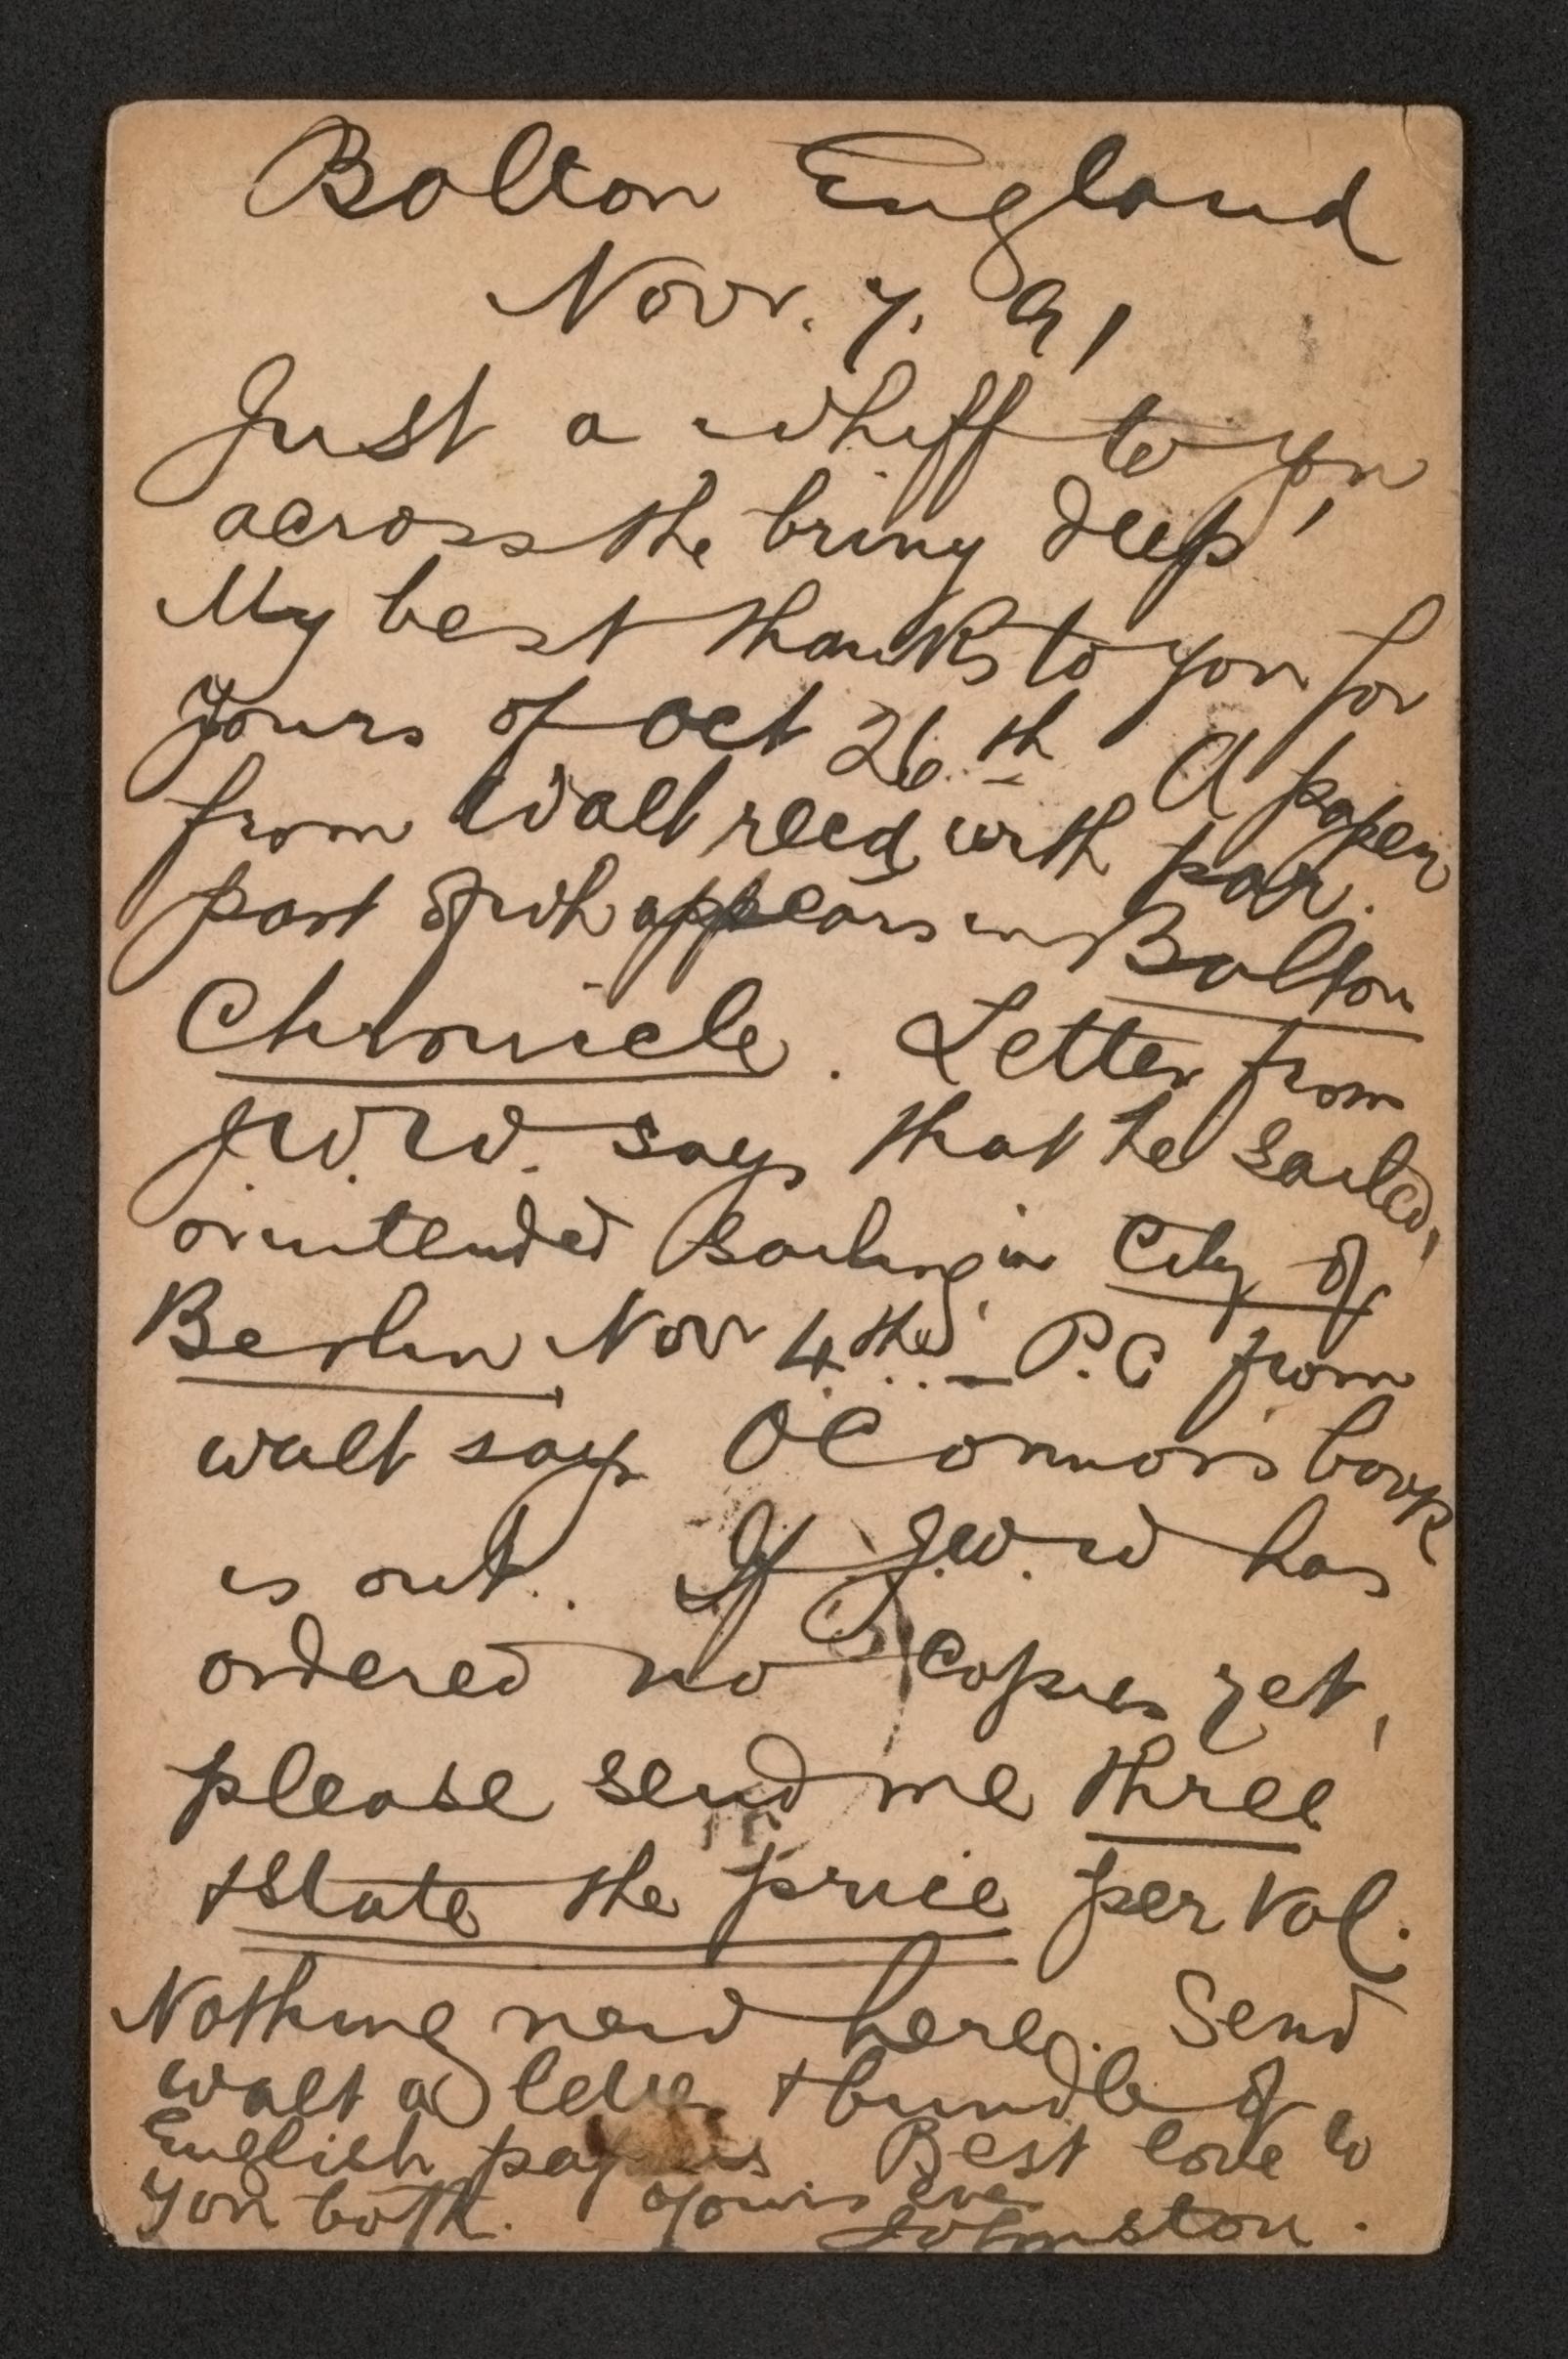 Bolton England
Novr. 7. 91
Just a whiff to you
across the briny deep!
My best thanks to you for
yours of Oct 26th A paper
from Walt recd with par.
part of wh appears in Bolton
Chronicle. Letter from
J.W.W. says that he sailed,
or intended sailing, in City of
Berlin Nov 4th — P.C from
Walt says O'Connor's book
is out. If J.W.W has
ordered no copies yet,
please send me three
& state the price per vol.
Nothing new here. Send
Walt a letter & bundle of
English papers Best love to
you both. Yours ever
Johnston.